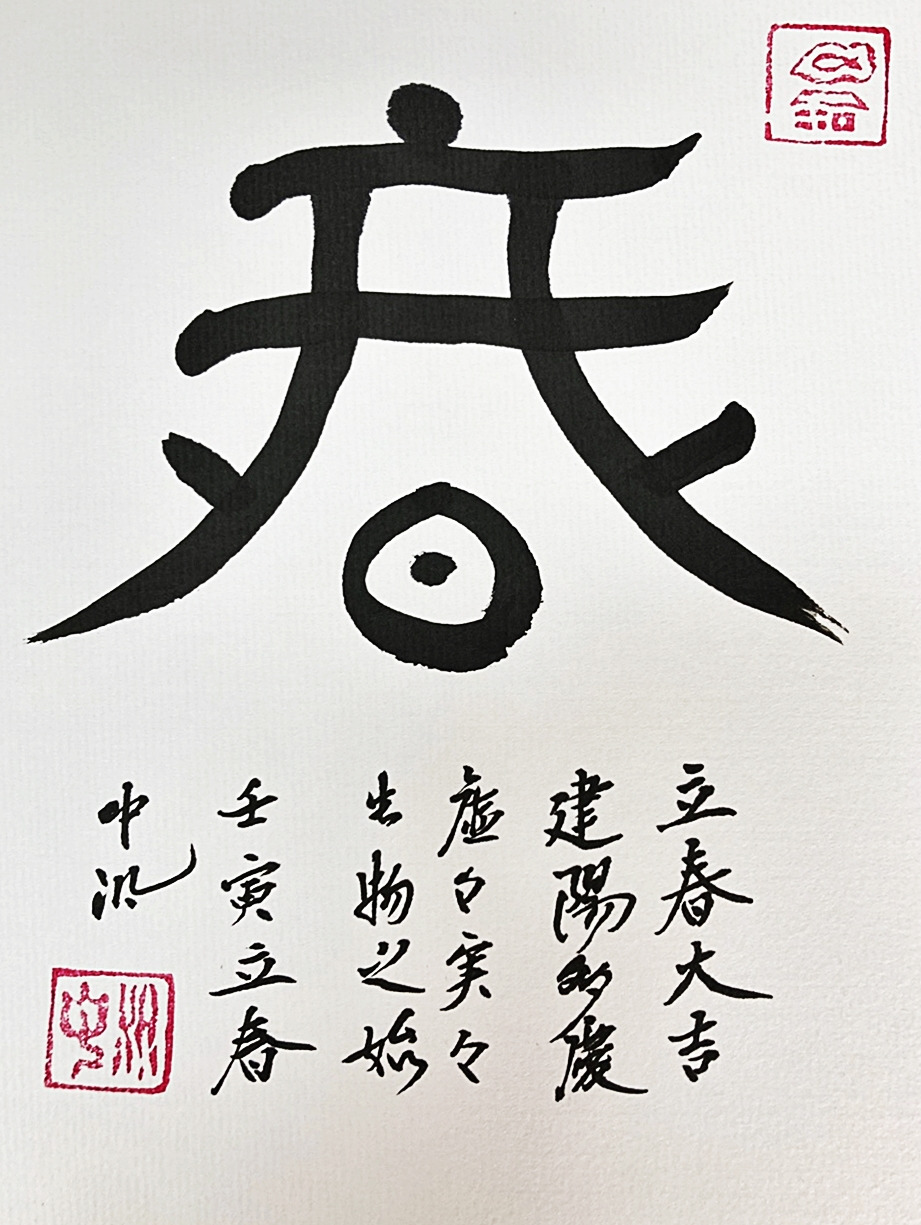 春
立春大吉
建陽多慶
虛々実々
生物之始
壬寅立春
中汎